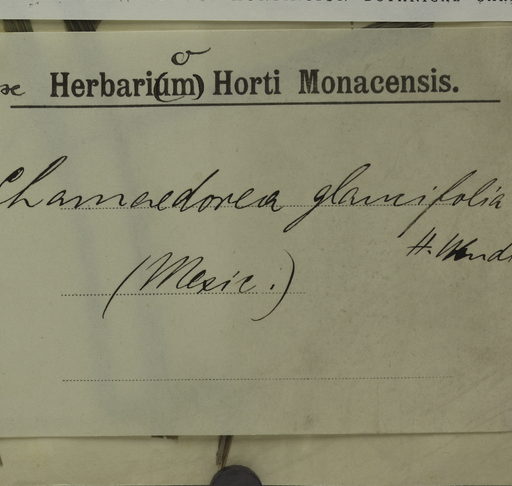 se Herbari(um)o Horti Monacensis.
Chamaedorea glaucifolia
H. Wendl
(Mexic.)